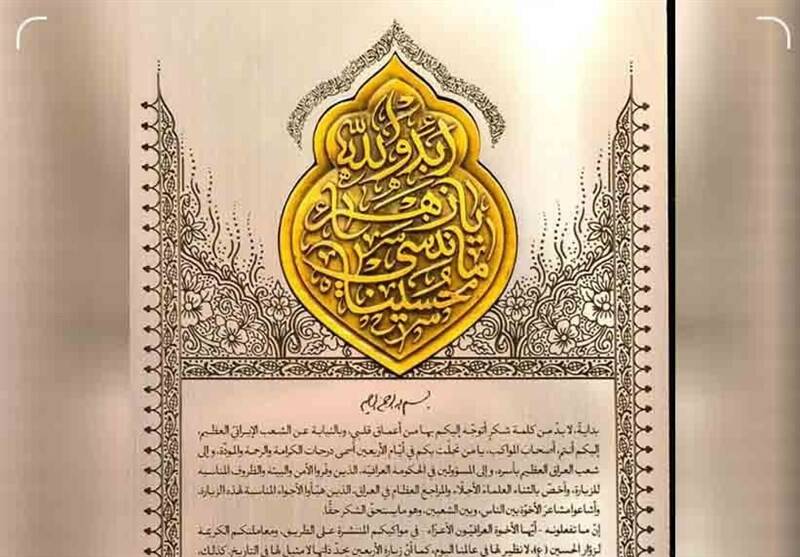 أبد والله
يا زهراء
ما ننسى
حسينا
بداية، لا بدّ من كلمة شكر أتوجّه إليكم بها من أعماق قلبي، وبالنيابة عن الشعب الإيرانيّ العظيم،
إليكم أنتم، أصحاب المواكب، يا من تجلّت بكم في أيّام الأربعين أسمى درجات الكرامة والرحمة والمودّة، وإلى
شعب العراق العظيم بأسره، وإلى المسؤولين في الحكومة العراقيّة، الذين وفّروا الأمن والبيئة والظروف المناسبة
للزيارة، وأخصّ بالثناء العلماء الأجلّاء والمراجع العظام في العراق، الذين هيّأوا الأجواء المناسبة لهذه الزيارة،
وأشاعوا مشاعر الأخوّة بين الناس، وبين الشعبين، وهو ما يستحق الشكر حقًّا.
إنّ ما تفعلونه - أيّها الأخوة العراقيّون الأعزّاء - في مواكبكم المنتشرة على الطريق، ومعاملتكم الكريمة
لزوّار الحسين (ع)، لا نظير لها في عالمنا اليوم، كما أنّ زيارة الأربعين بحدّ ذاتها لا مثيل لها في التاريخ. كذلك،